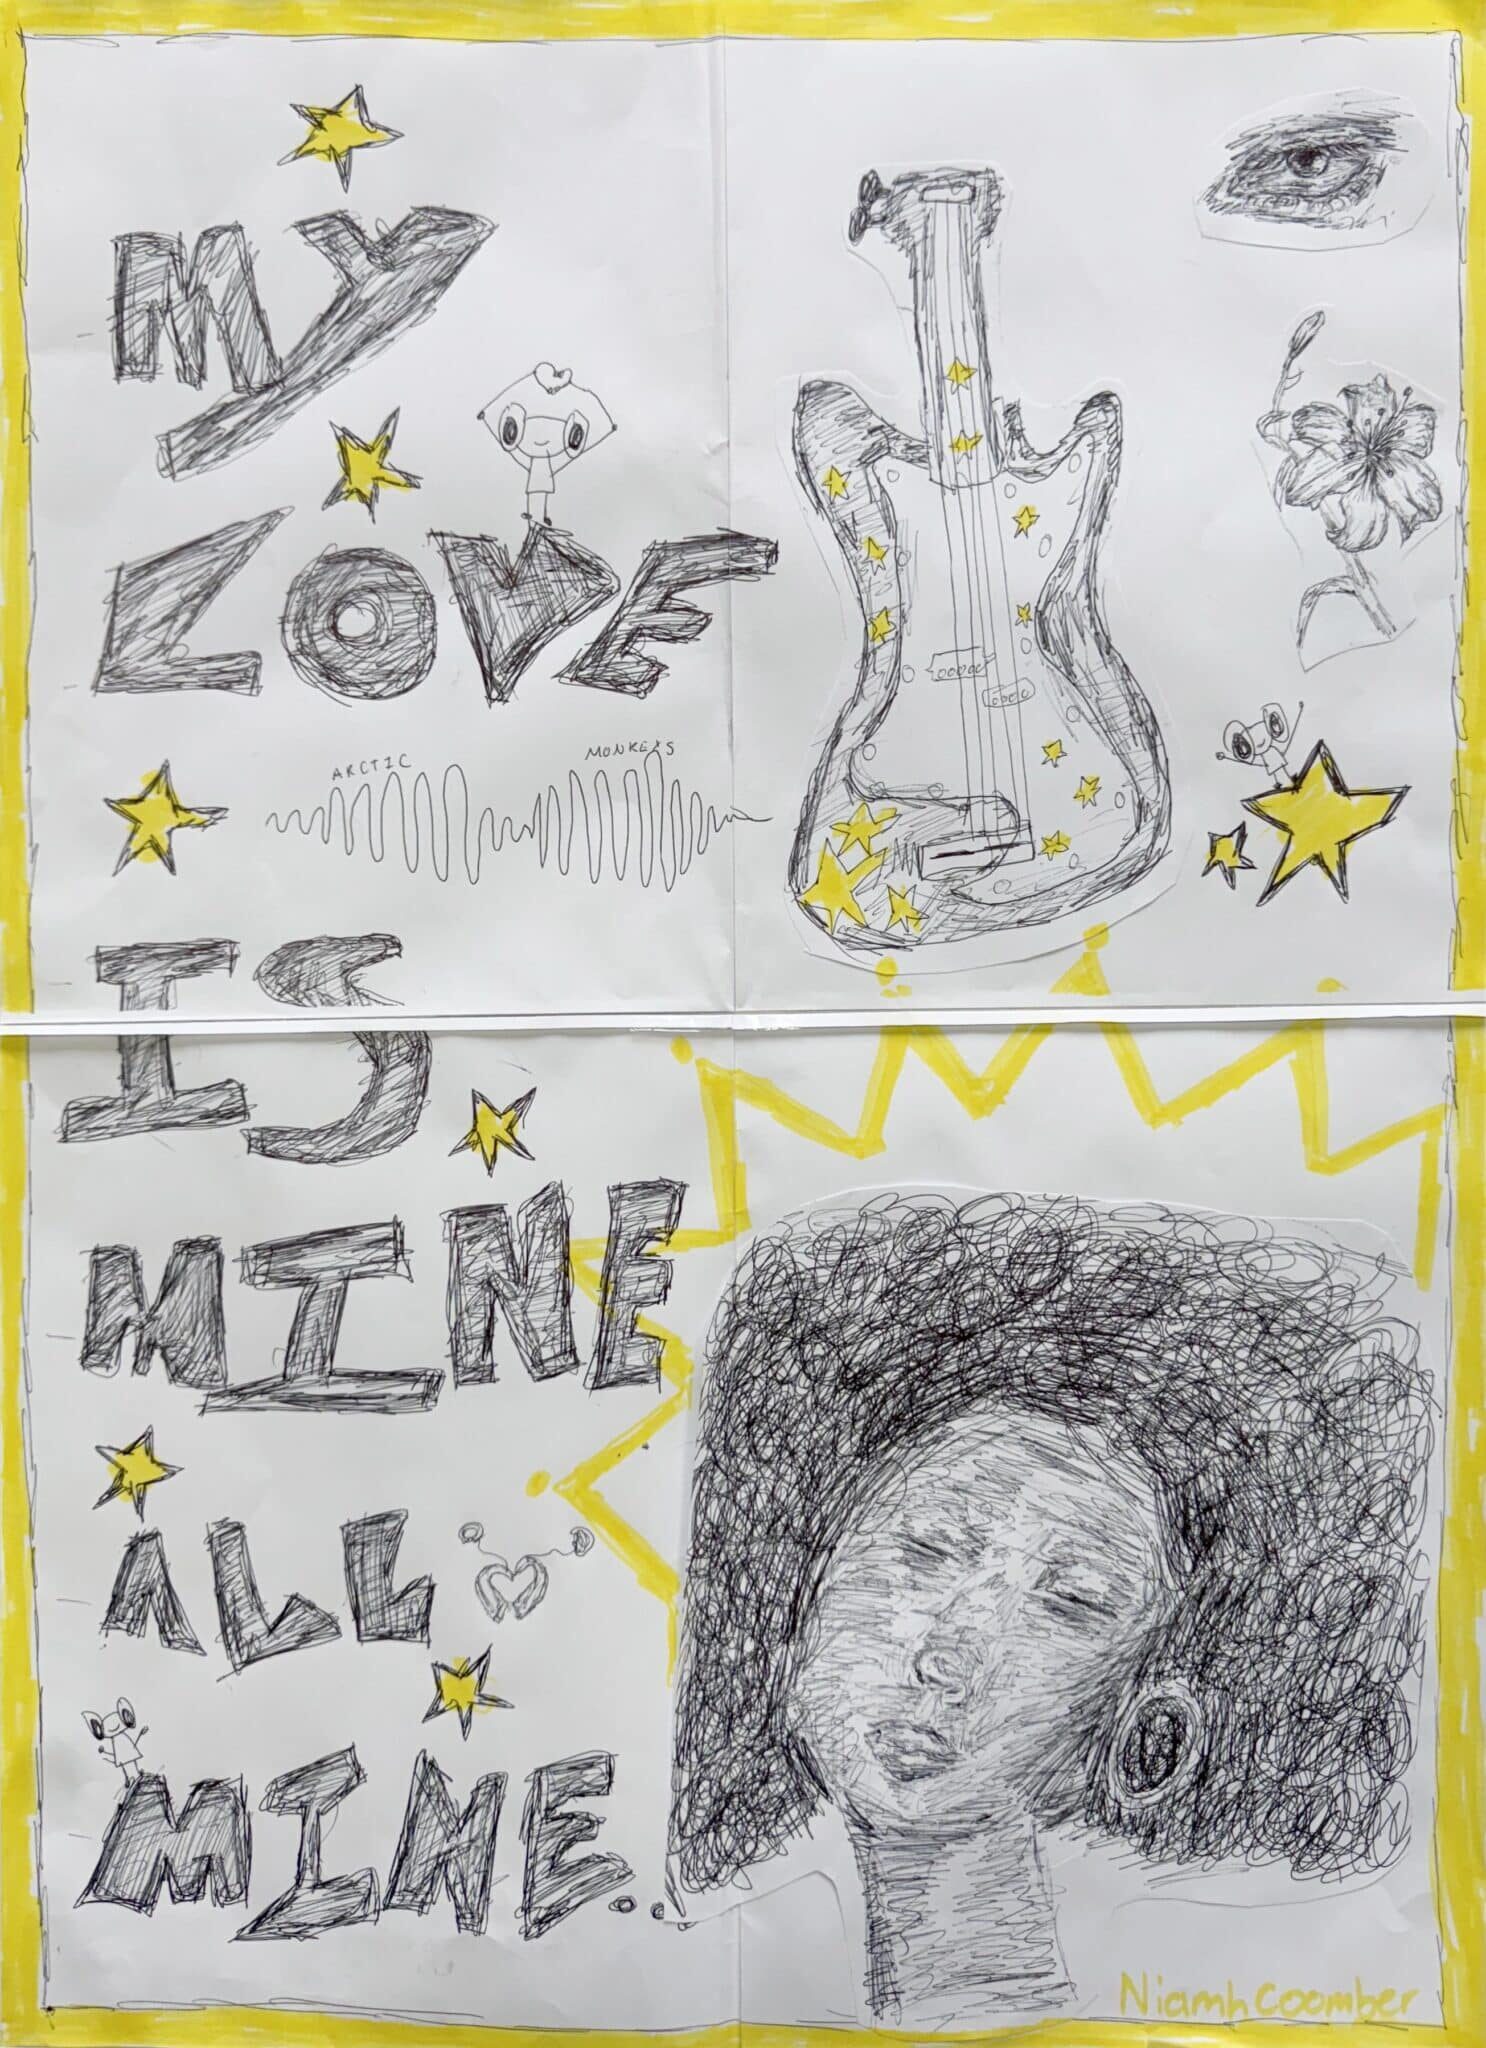 MY
LOVE
ARCTIC MONKEYS
IS
MINE
ALL
MINE..
Niamh Coomber